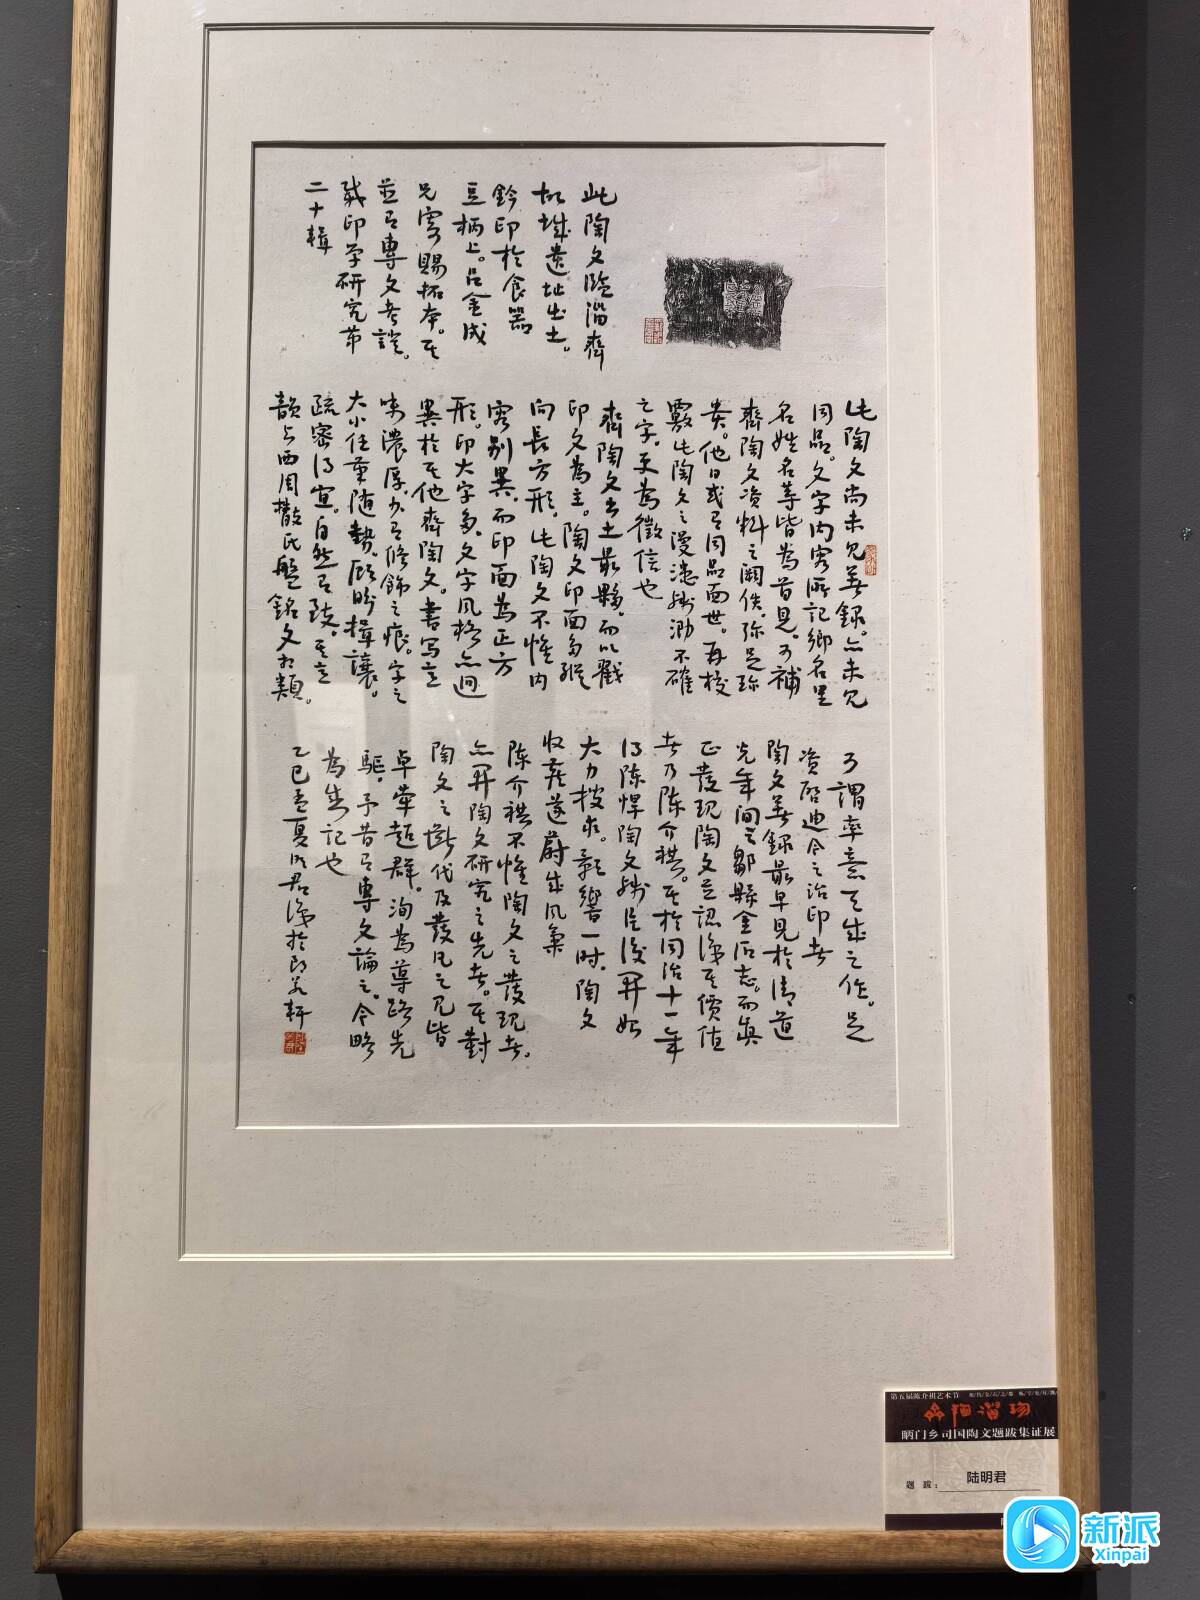 此陶文臨淄齊
故城遺址出土。
鈐印於食器
豆柄上。呂金成
兄寄賜拓本。其
並有專文考證。
載印学研究第
二十輯
此陶文尚未見著録。亦未見
同品。文字内容所記鄉名里
名姓名等皆為首見。可補
齊陶文资料之闕佚。弥足珍
贵。他日或有同品面世。再校
覈此陶文之漫漶残泐不確
之字。更為徵信也
齊陶文出土最夥。而以戳
印文為主。陶文印面多縱
向長方形。此陶文不惟内
容别異。而印面為正方
形。印大字多。文字风格亦迥
異於其他齊陶文。書写意
味濃厚。少有修飾之痕。字之
大小任筆随勢。顾盼揖讓。
疏密得宜。自然有致。其意
韻与西周散氏盤銘文相類。
可謂率意天成之作。足
资啓迪今之治印者
陶文著録最早見於清道
光年間之鄒縣金石志。而真
正發現陶文並認識其價值
者乃陳介祺。其於同治十一年
得陳悍陶文残片後開始
大力搜求。影響一时。陶文
收藏遂蔚成风氣
陳介祺不惟陶文之發現者。
亦開陶文研究之先者。其對
陶文之断代及發凡之見皆
卓犖超群。洵為導路先
驅。予昔有專文論之。今略
為此記也
乙巳孟夏明君識於郎若軒
第五届陈介祺艺术节
陶淄珍
眪门乡司国陶文题跋集证展
题 跋：
陆明君
新派
Xinpai